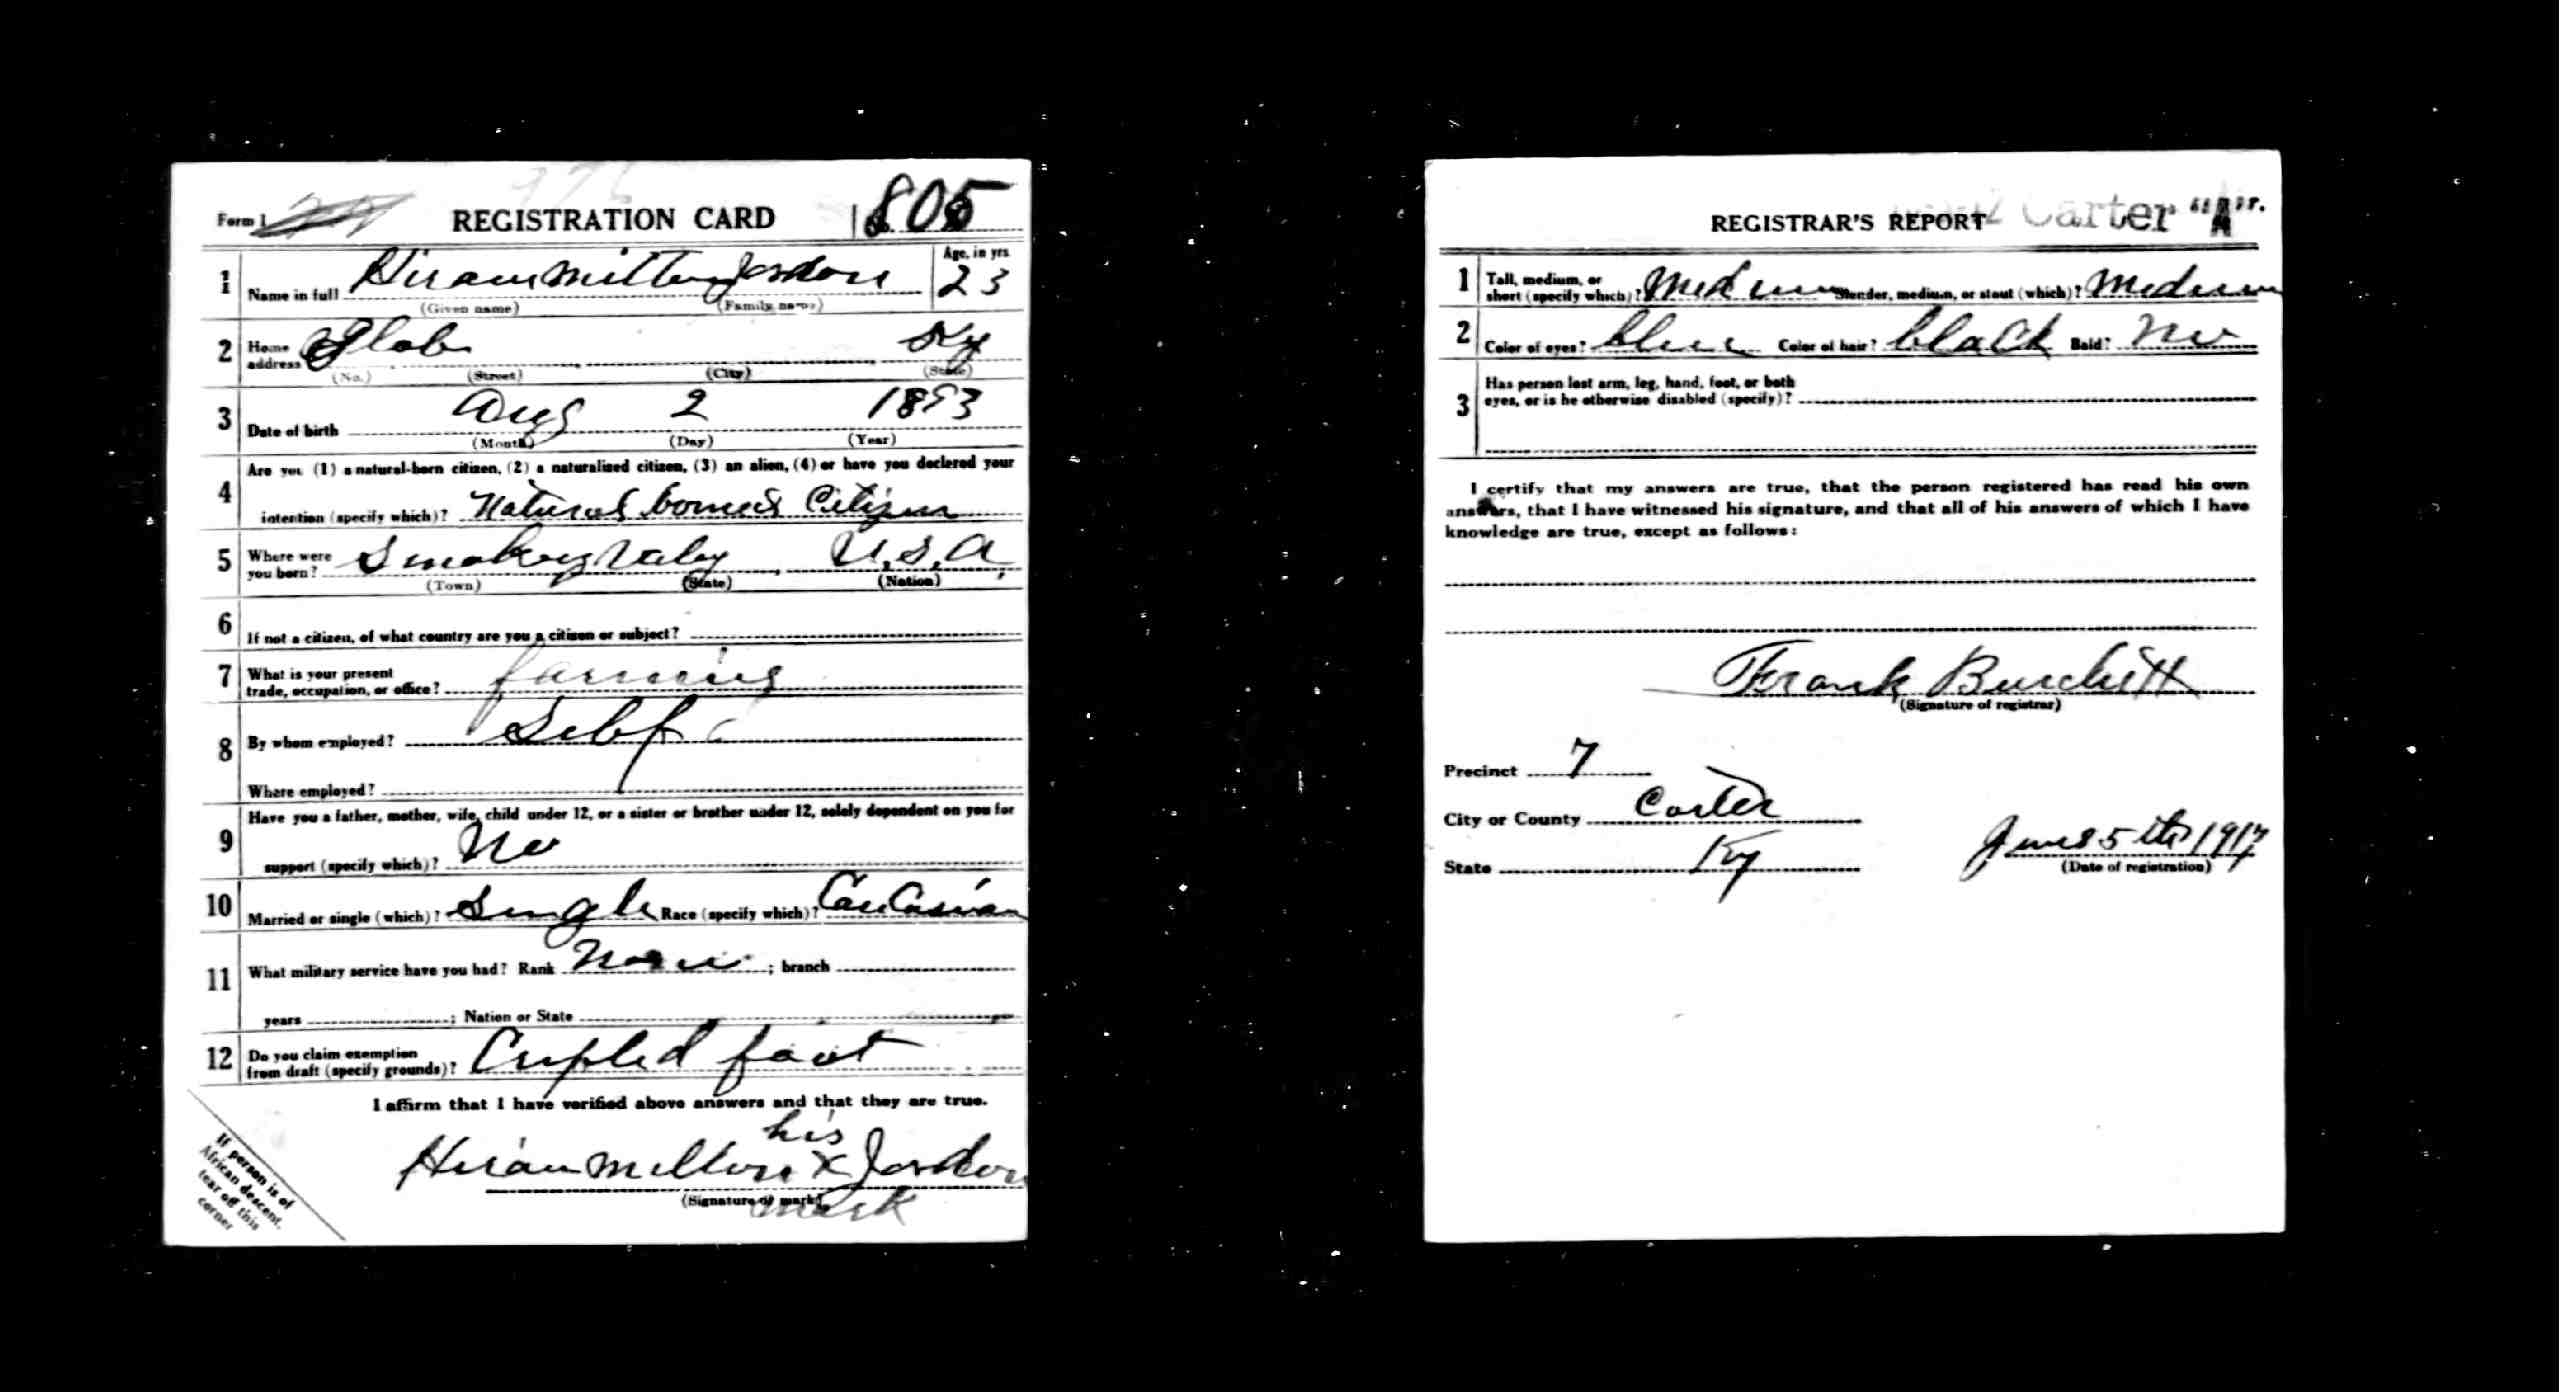 Form 1 REGISTRATION CARD 805
1 Name in full Hiram Milton Jordon Age, in yrs 23
(Given name) (Family name)
2 Home address Glob Ky
(No.) (Street) (City) (State)
3 Date of birth Aug 2 1893
(Month) (Day) (Year)
4 Are you (1) a natural-born citizen, (2) a naturalized citizen, (3) an alien, (4) or have you declared your
intention (specify which)? Natural Citizen
5 Where were you born? Smokey Valey U.S.A.
(Town) (State) (Nation)
6 If not a citizen, of what country are you a citizen or subject?
7 What is your present
trade, occupation, or office? farming
8 By whom employed? Self
Where employed?
9 Have you a father, mother, wife, child under 12, or a sister or brother under 12, solely dependent on you for
support (specify which)? No
10 Married or single (which)? Single Race (specify which)? Caucasian
11 What military service have you had? Rank None ; branch
years ; Nation or State
12 Do you claim exemption
from draft (specify grounds)? Cripled foot
I affirm that I have verified above answers and that they are true.
his
Hiram Milton X Jordon
(Signature or mark)
mark
If person is of
African descent,
tear off this
corner
REGISTRAR'S REPORT Carter "A"
1 Tall, medium, or
short (specify which)? Medium Slender, medium, or stout (which)? Medium
2 Color of eyes? blue Color of hair? black Bald? No
3 Has person lost arm, leg, hand, foot, or both
eyes, or is he otherwise disabled (specify)?
I certify that my answers are true, that the person registered has read his own
answers, that I have witnessed his signature, and that all of his answers of which I have
knowledge are true, except as follows:
Frank Burchett
(Signature of registrar)
Precinct 7
City or County Carter
State Ky June 5th 1917
(Date of registration)